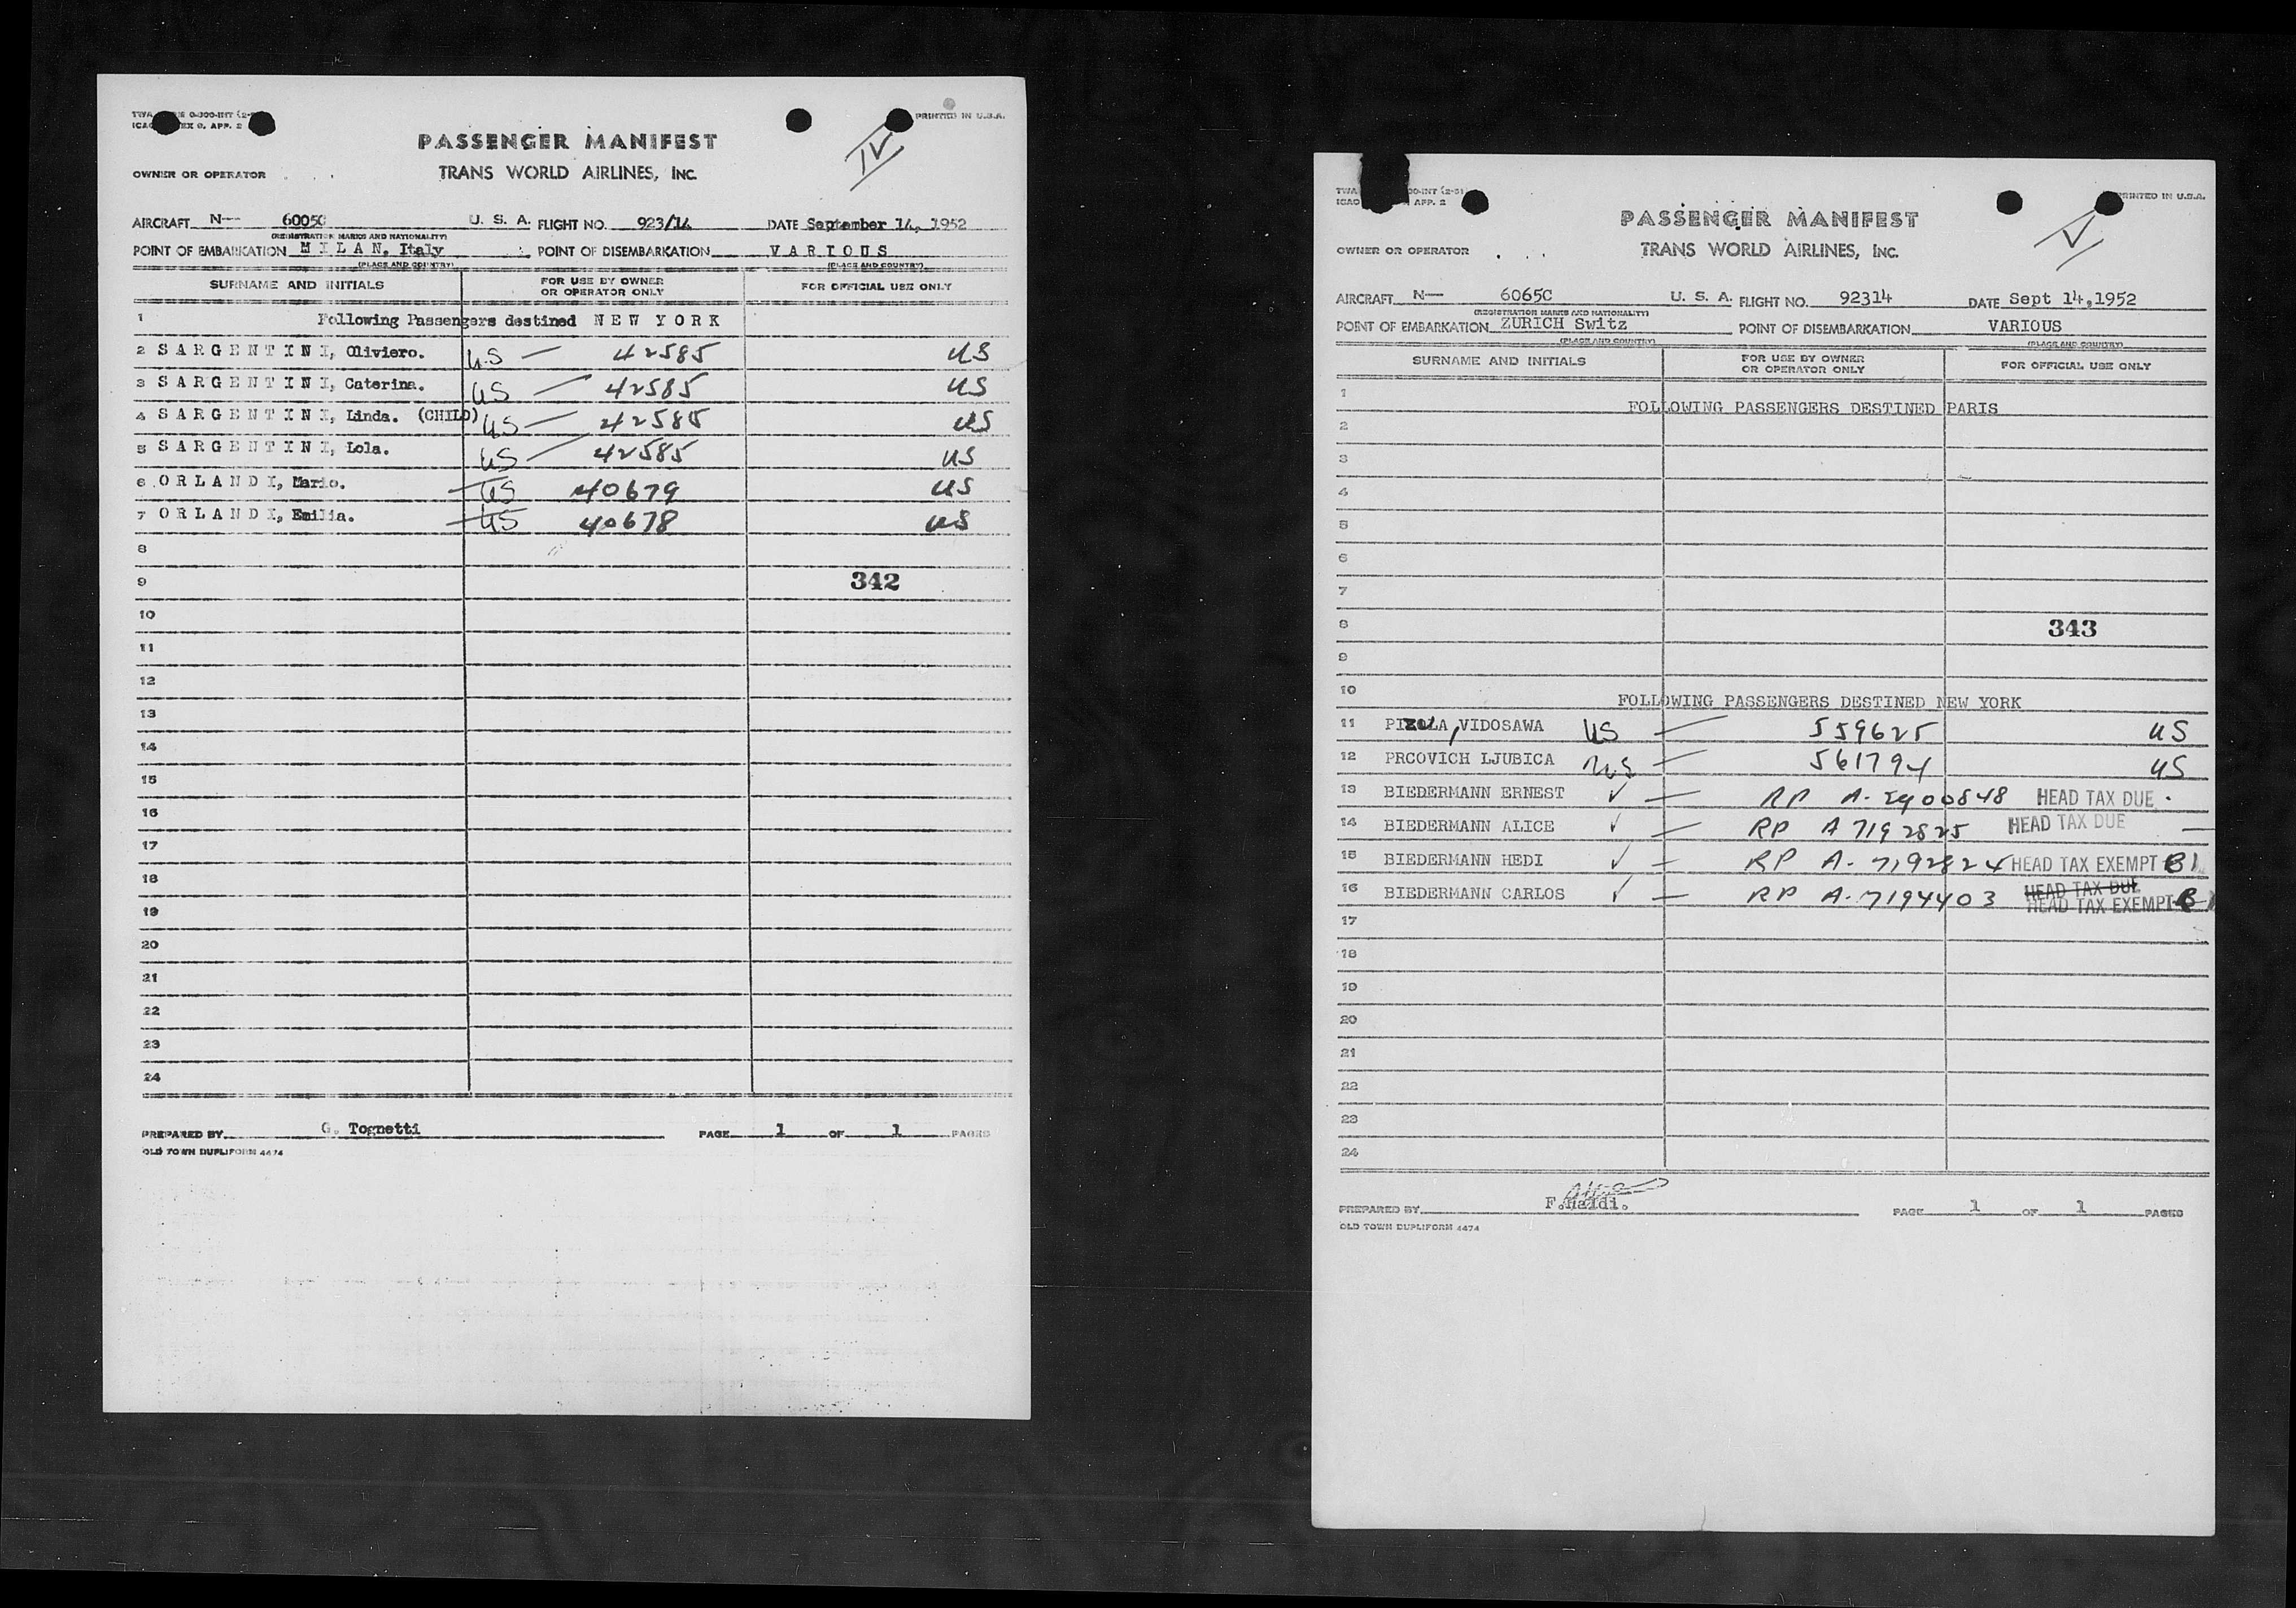 PRINTED IN U.S.A.
PASSENGER MANIFEST
IV
TRANS WORLD AIRLINES, INC.
OWNER OR OPERATOR
AIRCRAFT N— 6005C U. S. A. FLIGHT NO. 923/14 DATE September 14, 1952
(REGISTRATION MARKS AND NATIONALITY)
POINT OF EMBARKATION M I L A N, Italy POINT OF DISEMBARKATION V A R I O U S
(PLACE AND COUNTRY) (PLACE AND COUNTRY)
SURNAME AND INITIALS FOR USE BY OWNER OR OPERATOR ONLY FOR OFFICIAL USE ONLY
1 Following Passengers destined N E W Y O R K
2 S A R G E N T I N I, Oliviero. US — 42585 US
3 S A R G E N T I N I, Caterina. US — 42585 US
4 S A R G E N T I N I, Linda. (CHILD) US — 42585 US
5 S A R G E N T I N I, Lola. US — 42585 US
6 O R L A N D I, Mario. US 40679 US
7 O R L A N D I, Emilia. US 40678 US
8
9 342
10
11
12
13
14
15
16
17
18
19
20
21
22
23
24
PREPARED BY G. Tognetti PAGE 1 OF 1 PAGES
OLD TOWN DUPLIFORM 4474
PRINTED IN U.S.A.
PASSENGER MANIFEST
V
TRANS WORLD AIRLINES, INC.
OWNER OR OPERATOR
AIRCRAFT N— 6065C U. S. A. FLIGHT NO. 92314 DATE Sept 14,1952
(REGISTRATION MARKS AND NATIONALITY)
POINT OF EMBARKATION ZURICH Switz POINT OF DISEMBARKATION VARIOUS
(PLACE AND COUNTRY) (PLACE AND COUNTRY)
SURNAME AND INITIALS FOR USE BY OWNER OR OPERATOR ONLY FOR OFFICIAL USE ONLY
1 FOLLOWING PASSENGERS DESTINED PARIS
2
3
4
5
6
7
8 343
9
10 FOLLOWING PASSENGERS DESTINED NEW YORK
11 VIDOSAWA US — 559625 US
12 PRCOVICH LJUBICA US — 561794 US
13 BIEDERMANN ERNEST ✓ — RP A- HEAD TAX DUE
14 BIEDERMANN ALICE ✓ — RP A 7192825 HEAD TAX DUE —
15 BIEDERMANN HEDI ✓ — RP A- 7192824 HEAD TAX EXEMPT B1
16 BIEDERMANN CARLOS ✓ — RP A- 7194403 HEAD TAX DUE
HEAD TAX EXEMPT B
17
18
19
20
21
22
23
24
PREPARED BY F.Haldi. PAGE 1 OF 1 PAGES
OLD TOWN DUPLIFORM 4474